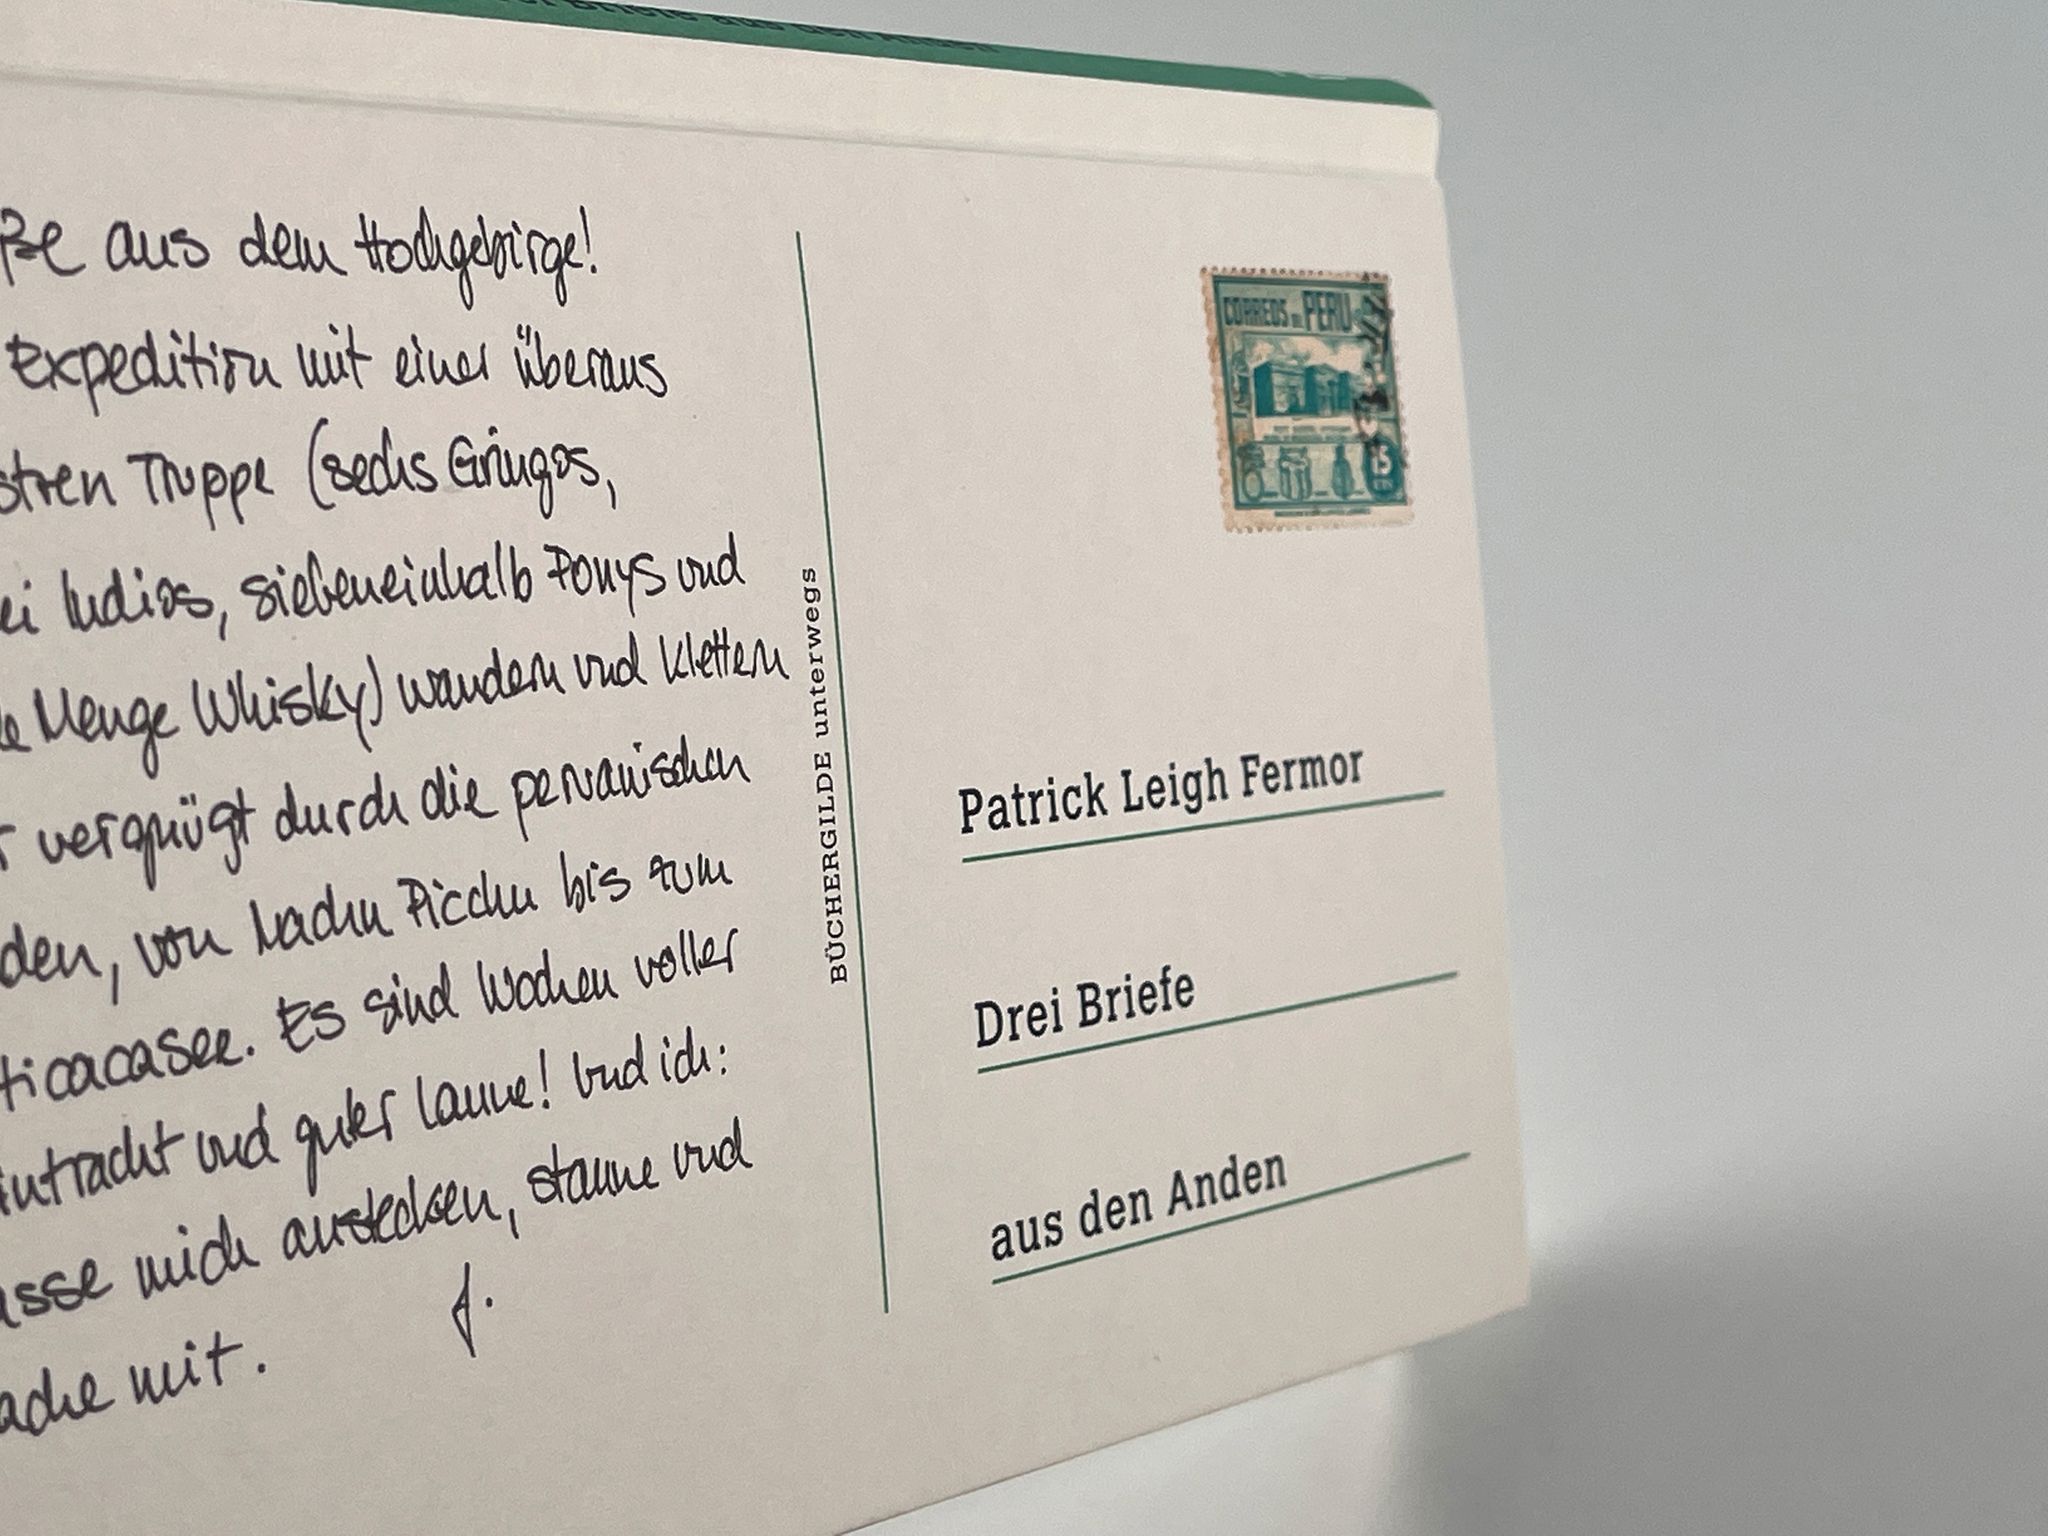 aus dem Hochgebirge!
Expedition mit einer überaus
Truppe (sechs Gringos,
Indios, siebeneinhalb Ponys und
Menge Whisky) wandern und klettern
vergnügt durch die peruanischen
von Machu Picchu bis zum
ticacasee. Es sind Wochen voller
intracht und guter Laune! Und ich:
asse mich anstecken, staune und
ache mit. f.
BÜCHERGILDE unterwegs
CORREOS DE PERU
15
Patrick Leigh Fermor
Drei Briefe
aus den Anden